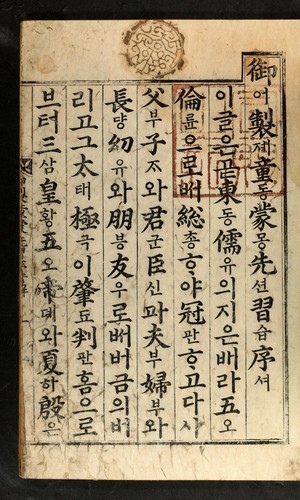 御어製졔童동蒙몽先션習습序셔
이글은곧東동儒유의지은배라五오
倫륜으로ᄡᅥ總총ᄒᆞ야冠관ᄒᆞ고다시
父부子ᄌᆞ와君군臣신과夫부婦부와
長댱幼유와朋붕友우로ᄡᅥ버금의버
리고그太태極극이肇됴判판홈으로
브터三삼皇황五오帝뎨와夏하殷은